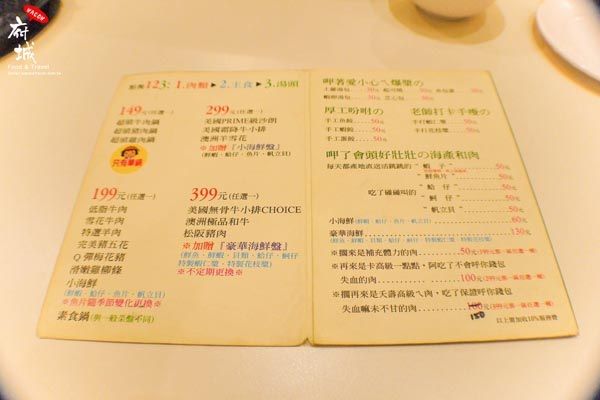 VACOV
府城
Food & Travel
點餐123: 1.肉類▸2.主食▸3.湯頭
149元(任選一)
超頭牛肉鍋
超頭豬肉鍋
超頭雞肉鍋
只有單鍋
299元(任選一)
美國PRIME級沙朗
美國霜降牛小排
澳洲羊雪花
※加贈『小海鮮盤』
(鮮蝦、蛤仔、魚片、帆立貝)
199元(任選一)
低脂牛肉
雪花牛肉
特選羊肉
完美豬五花
Q彈梅花豬
滑嫩雞柳條
小海鮮
(鮮蝦、蛤仔、魚片、帆立貝)
※魚片隨季節變化更換※
素食鍋(與一般菜盤不同)
399元(任選一)
美國無骨牛小排CHOICE
澳洲極品和牛
松阪豬肉
※加贈『豪華海鮮盤』
(鮮魚、鮮蝦、貝類、蛤仔、蚵仔
特製蝦仁漿、特製花枝漿)
※不定期更換※
呷著愛小心ㄟ爆漿の
厚工吩咐の
手工魚餃........50元
手工蝦餃........50元
手工蛋餃........50元
老師打卡手痠の
手打蝦仁漿......50元
手打花枝漿......50元
呷了會頭好壯壯の海產和肉
每天都產地直送活跳跳的 " 蝦 子 "........50元
" 鮮魚片 "........50元
吃了碰碰叫的 " 蛤 仔 "........50元
" 蚵 仔 "........50元
" 帆立貝 "........50元
小海鮮(鮮蝦、蛤仔、魚片、帆立貝)........60元
豪華海鮮........130元
(鮮魚、鮮蝦、貝類、蛤仔、蚵仔、特製蝦仁漿、特製花枝漿)
※擱來是補充體力的肉........50元(199元第一區任選一種)
※再來是卡高級一點點，阿吃了不會呼你錢包
失血的肉........100元(299元第一區任選一種)
※擱再來是夭壽高級ㄟ肉，吃了保證呼你錢包
失血嘛未不甘的肉........100元(399元第一區任選一種)
150
以上需加收10%服務費